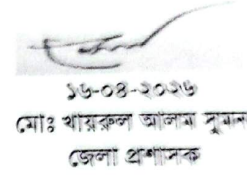 ১৬-০৪-২০২৬
মোঃ খায়রুল আলম সুমন
জেলা প্রশাসক